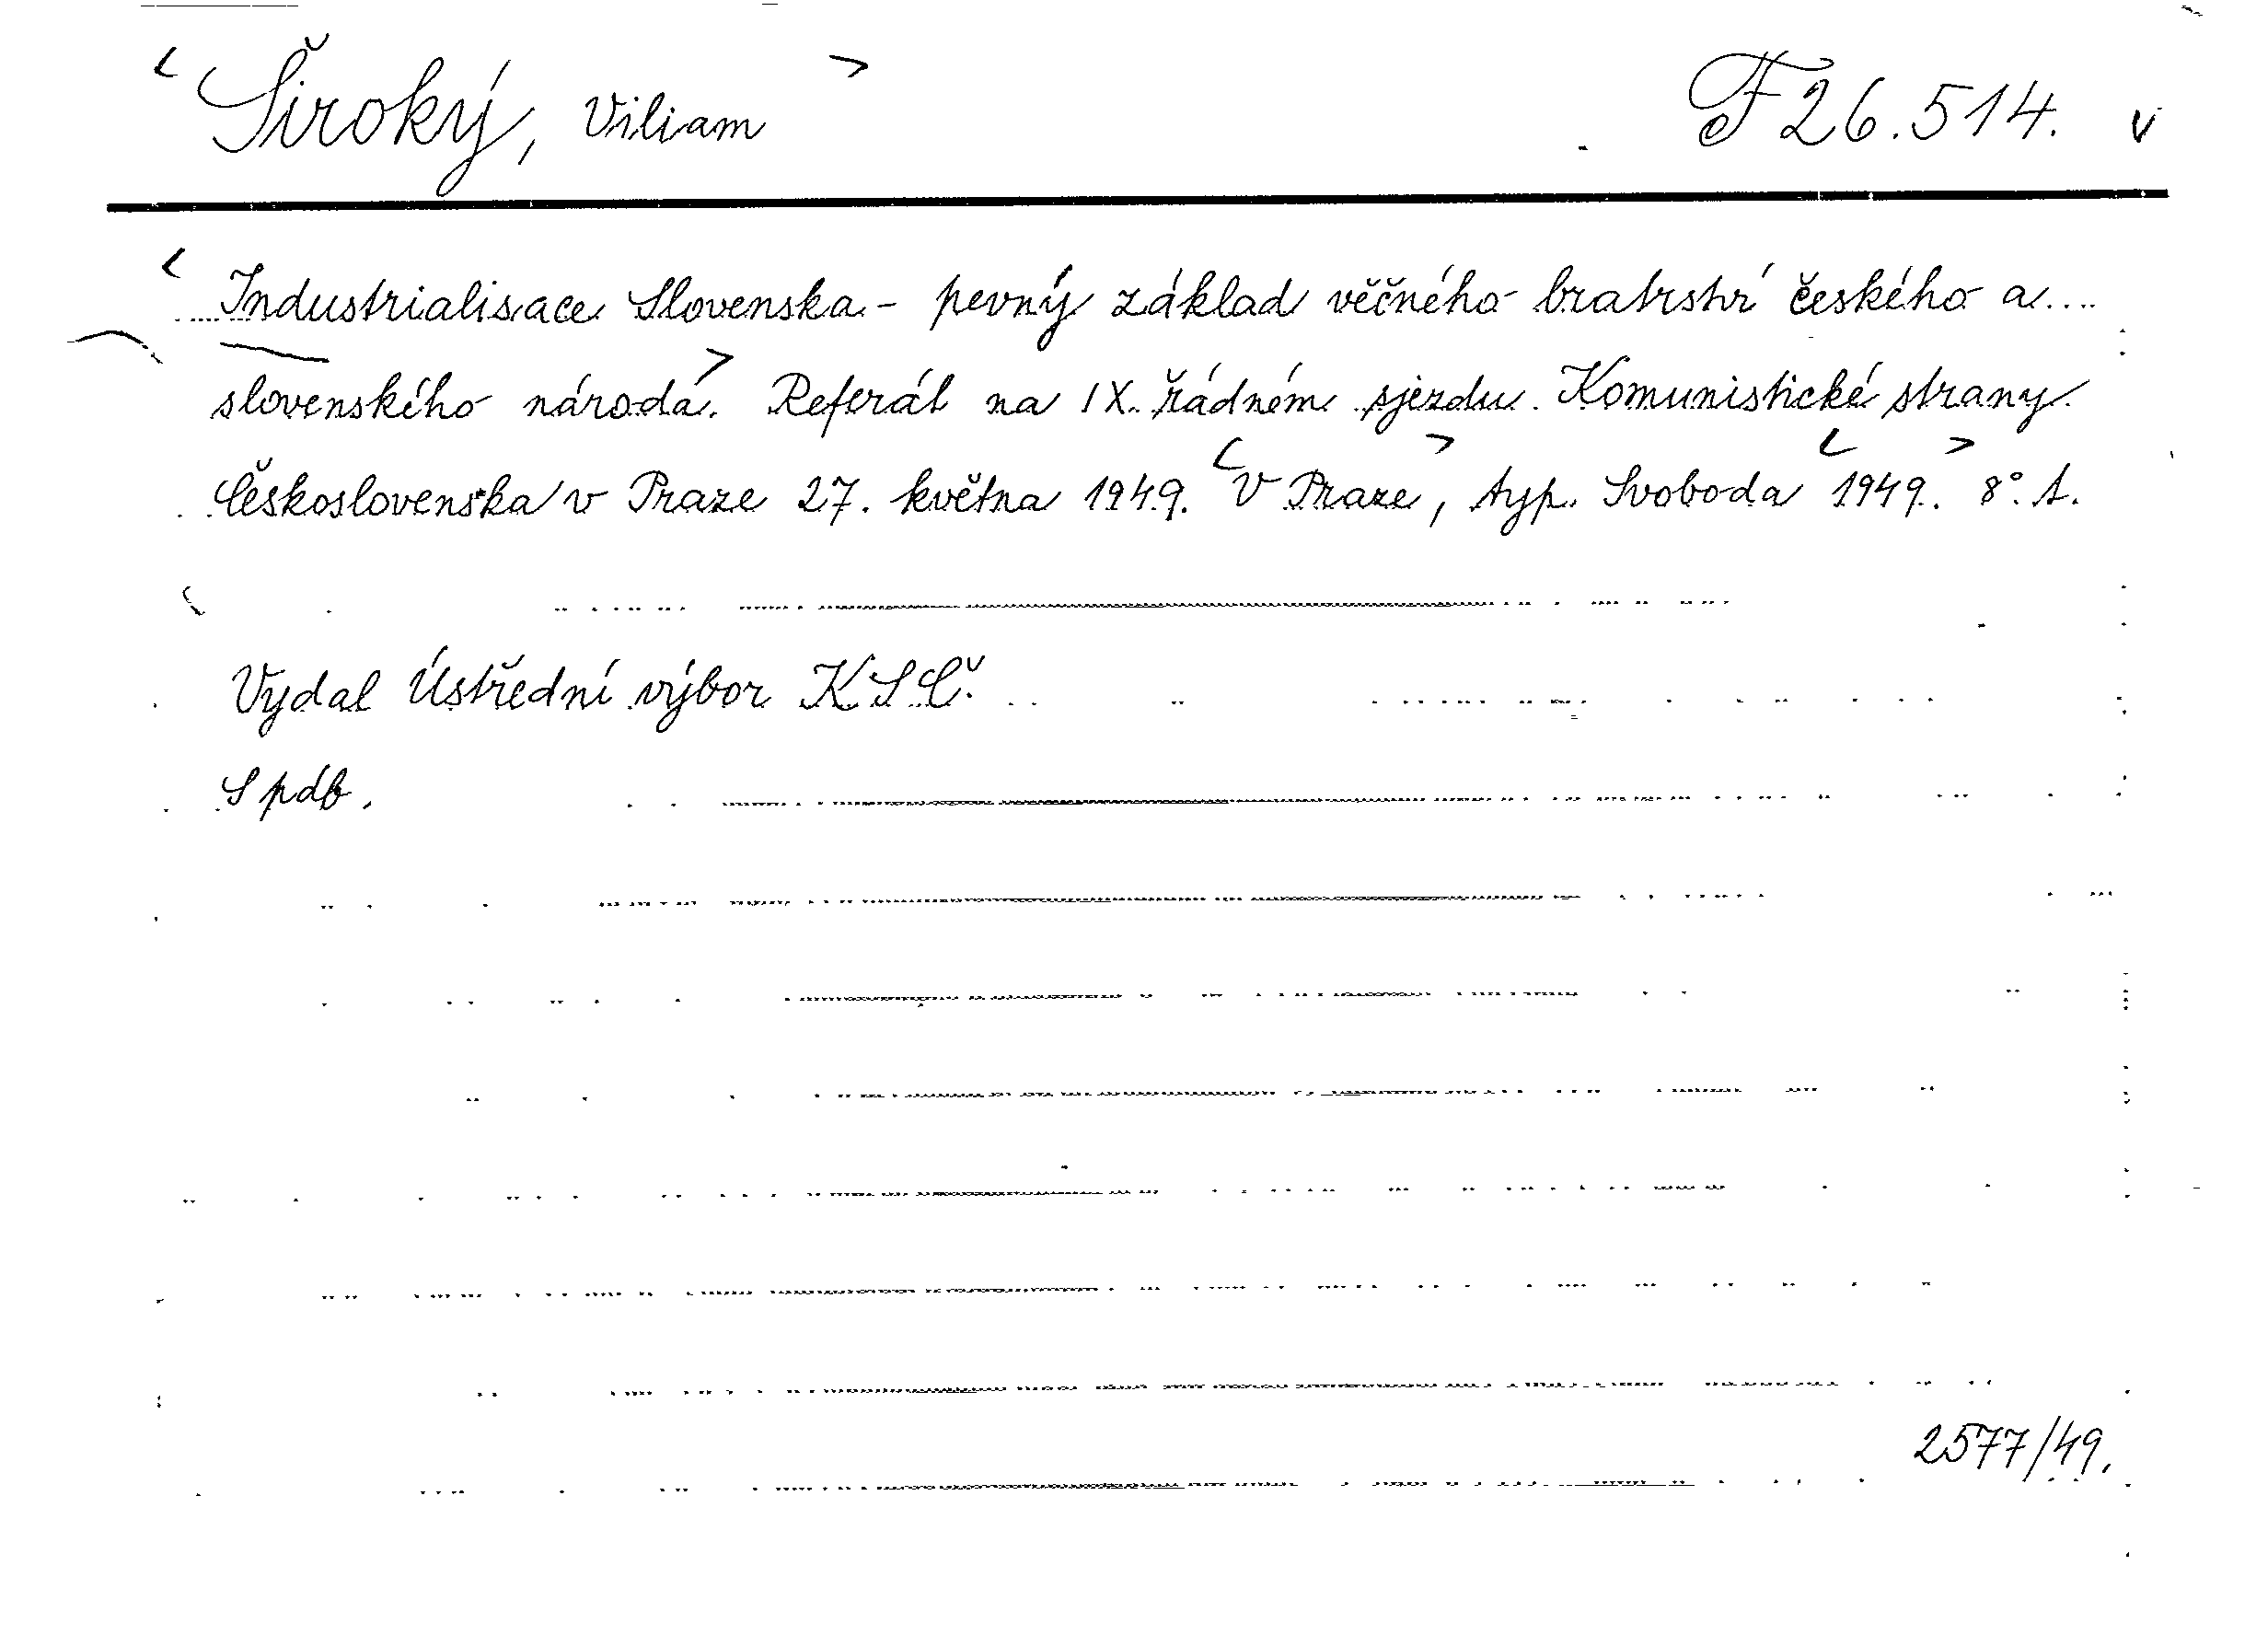 < Široký, Viliam > F 26.514. v
< Industrialisace Slovenska - pevný základ věčného bratrství českého a
slovenského národa >. Referát na IX. řádném sjezdu Komunistické strany
Československa v Praze 27. května 1949. < V Praze >, typ. Svoboda < 1949 >. 8°. 1.
Vydal Ústřední výbor KSČ.
S pdb.
2577/49.